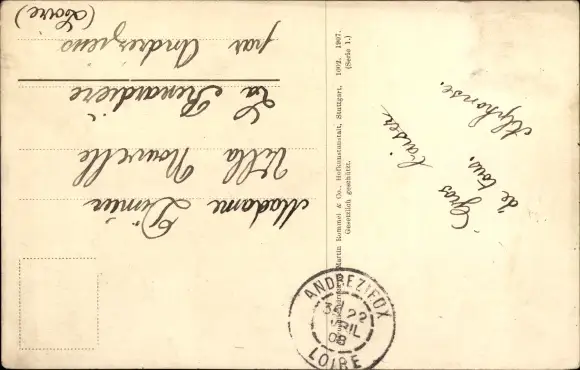 Gros baisers
de tous.
Alphonse.
Martin Rommel & Co., Hofkunstanstalt, Stuttgart, 1002. 1907.
Gesetzlich geschützt. (Serie 1.)
Madame Dimier
Villa Nouvelle
La Renardière
par Andrezieux
(Loire)
ANDREZIEUX
22
AVRIL
08
LOIRE